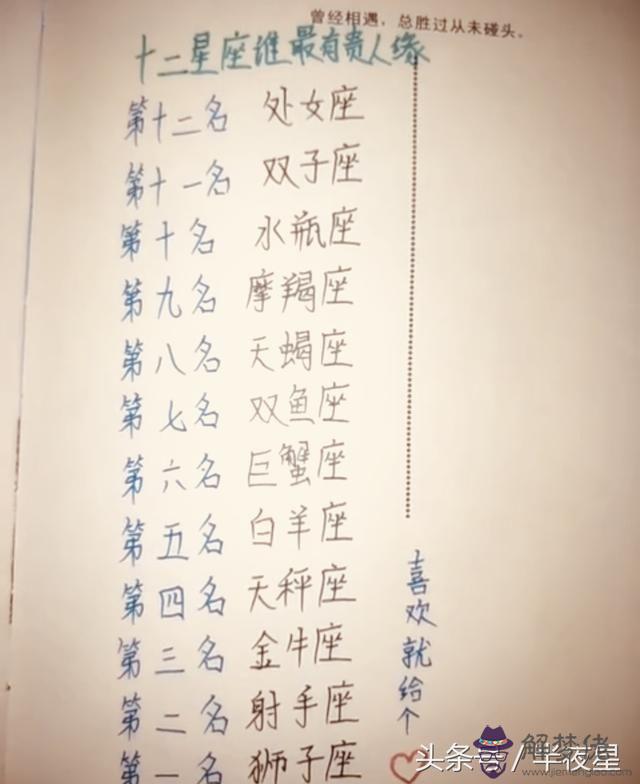 曾经相遇，总胜过从未碰头。
十二星座谁最有贵人缘
第十二名 处女座
第十一名 双子座
第十名 水瓶座
第九名 摩羯座
第八名 天蝎座
第七名 双鱼座
第六名 巨蟹座
第五名 白羊座
第四名 天秤座
第三名 金牛座
第二名 射手座
第一名 狮子座
喜欢就给个
头条号/半夜星
解梦佬
www.jiemenglao.com